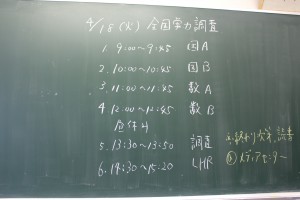 4/18(火) 全国学力調査
1. 9:00〜9:45 国A
2. 10:00〜10:45 国B
3. 11:00〜11:45 数A
4. 12:00〜12:45 数B
昼休み
5. 13:30〜13:50 調査
6. 14:30〜15:20 LHR
終わり次第、読書
メディアセンター